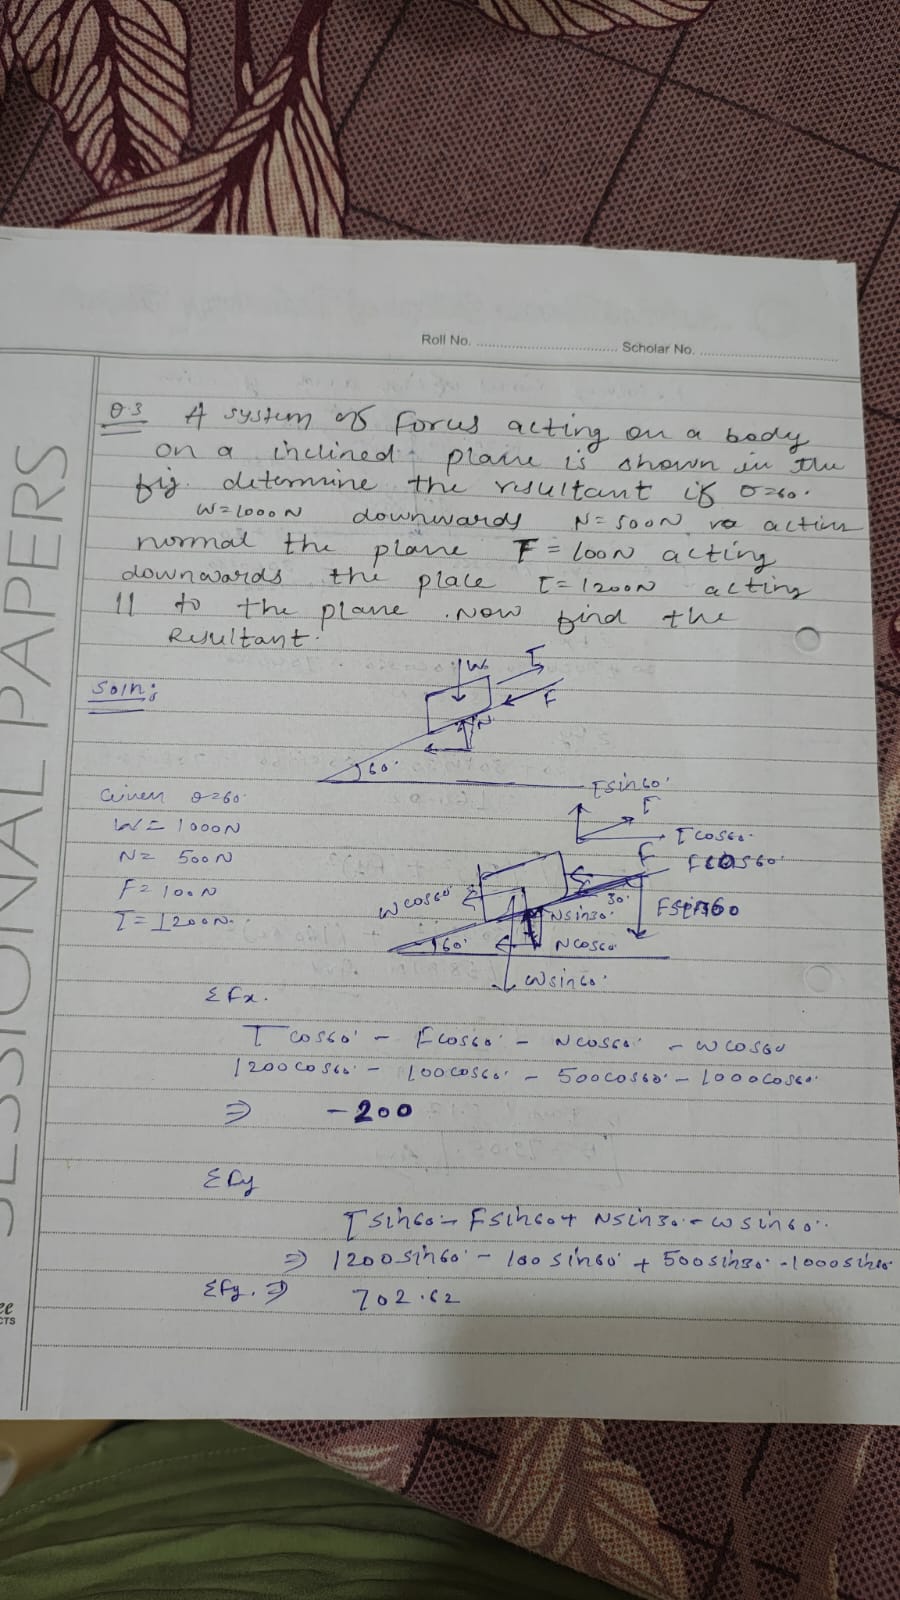 Roll No. ........................ Scholar No. ........................
SESSIONAL PAPERS
Q.3 A system of Forces acting on a body
on a inclined plane is shown in the
fig. determine the resultant if θ=60°
W=1000N downwards N=500N acting
normal the plane F=100N acting
downwards the place T=1200N acting
11 to the plane. Now find the
Resultant.
Soln:
W T
F
N
60°
Given θ=60°
W=1000N
N= 500N
F=100N
T=1200N.
Tsin60°
T
Tcos60°
F Fcos60°
Wcos60°
30° Fsin60
Nsin30°
60° Ncos60°
Wsin60°
ΣFx.
Tcos60° - Fcos60° - Ncos60° - Wcos60
1200cos60° - 100cos60° - 500cos60° - 1000cos60°
⇒ -200
ΣFy
Tsin60 - Fsin60+ Nsin30 - Wsin60°
⇒ 1200sin60° - 100sin60° + 500sin30° -1000sin60°
ΣFy. ⇒ 702.62